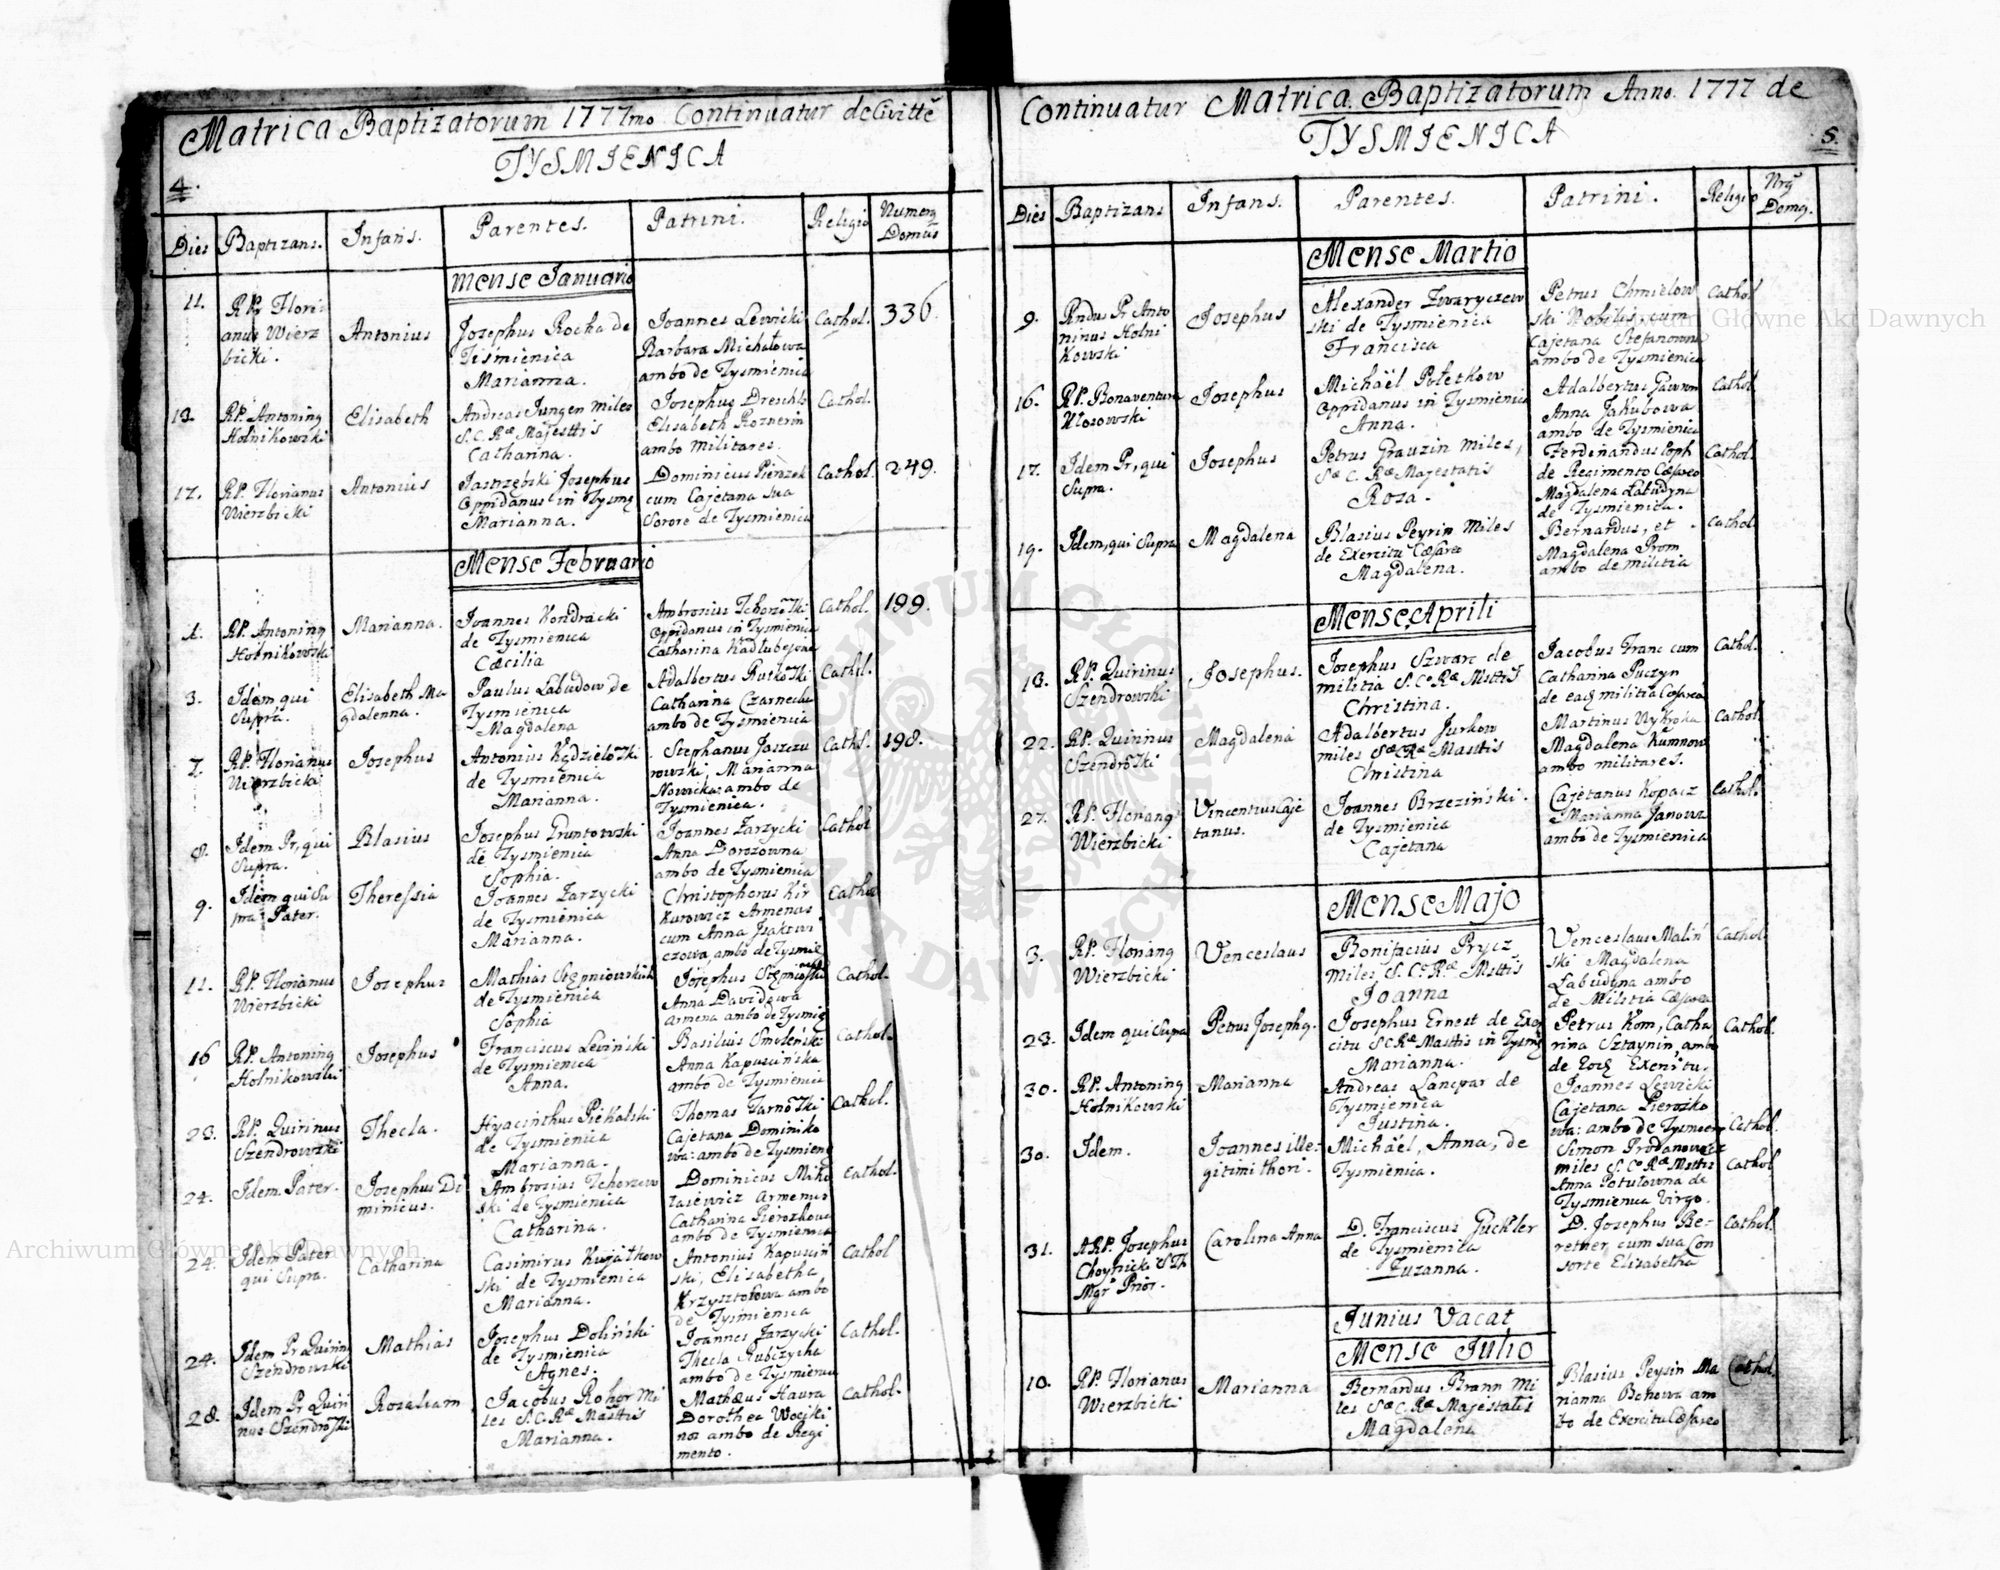 Matrica Baptizatorum 1777mo Continuatur de Civitte
TYSMIENICA
4.
Dies Baptizans. Infans. Parentes. Patrini. Religio Numerq Domus
Mense Januario
11. RP. Flori-
anus Wierz
bicki.
Antonius
Josephus Rocha de
Tismienica
Marianna.
Joannes Lewicki
Barbara Michałowa
ambo de Tysmienica
Cathol. 336
13. RP. Antoninq
Holnikowski
Elisabeth
Andreas Jungen miles
S.C.Ræ Majesttis
Catharina.
Josephus Dreschls
Elisabeth Roznerin
ambo Militares.
Cathol.
17. RP. Florianus
Wierzbicki
Antonius
Jastrzębski Josephus
Oppidanus in Tysmę
Marianna.
Dominicus Pienzek
cum Cajetana sua
Sorore de Tysmienica
Cathol. 249.
Mense Februario
1. RP. Antoninq
Holnikowski
Marianna.
Joannes Kondracki
de Tysmienica
Cæcilia
Ambrosius
Oppidanus in Tysmienica
Catharina Kadlubejowa
Cathol. 199.
3. Idem qui
Supra.
Elisabeth Ma
gdalenna.
Paulus Labudow de
Tysmienica
Magdalena
Adalbertus
Catharina Czarnecka
ambo de Tysmienica
Cathol.
7. RP. Florianus
Wierzbicki
Josephus
Antonius
de Tysmienica
Marianna.
Stephanus Jaszczu
rowski, Marianna
Nowicka: ambo de
Tysmienica.
Cathol. 198.
8. Idem Pr, qui
Supra.
Blasius
Josephus Gruntowski
de Tysmienica
Sophia.
Joannes Zarzycki
Anna Dorozowna
ambo de Tysmienica
Cathol
9. Idem qui Su
pra Pater.
Theressia
Joannes Zarzycki
de Tysmienica
Marianna.
Christophorus Kir
kurowicz Armenus
cum Anna
czowa, ambo de Tysmie
Cathol
11. RP. Florianus
Wierzbicki
Josephus
Mathias
de Tysmienica
Sophia
Josephus
Anna Davidowa
Armena ambo de Tysmię
Cathol.
16 RP. Antoninq
Holnikowski
Josephus
Franciscus Lewiński
de Tysmienica
Anna.
Basilius Smoleński
Anna Kapuscińska
ambo de Tysmienica
Cathol.
23. RP. Quirinus
Szendrowski
Thecla.
Hyacinthus Piekalski
de Tysmienica
Marianna.
Thomas
Cajetana Dominiko
wa: ambo de Tysmienę
Cathol.
24. Idem Pater.
Josephus Do
minicus.
Ambrosius Tchorzew
ski de Tysmienica
Catharina.
Dominicus Miko
łasiewicz Armenus
Catharina Pierozkowa
ambo de Tysmienica
Cathol.
24. Idem Pater
qui Supra.
Catharina
Casimirus Kujatkow
ski de Tysmienica
Marianna.
Antonius Kapuscin
ski, Elisabetha
Krzysztofowa ambo
de Tysmienica
Cathol
24. Idem Pr Quirinq
Szendrowski
Mathias
Josephus Doliński
de Tysmienica
Agnes.
Joannes Zarzycki
Thecla Rubczycha
ambo de Tysmienica
Cathol.
28. Idem Pr Quiri
nus
Rosaliam
Jacobus Roher Mi
les S.C.Ræ Masttis
Marianna.
Mathæus Haura
Dorothea
ambo de Regi
mento.
Cathol.
Continuatur Matrica Baptizatorum Anno 1777 de
TYSMIENICA
5.
Dies Baptizans Infans. Parentes. Patrini. Religio Nrq Domq.
Mense Martio
9. Rndus Pr Anto
ninus Holni
kowski
Josephus
Alexander Zwaryczew
ski de Tysmienica
Francisca
Petrus Chmielow
ski Nobilis, cum
Cajetana Stefanowna
ambo de Tysmienica
Cathol
16. RP. Bonaventura
Wlosowski
Josephus
Michaël Poletkow
Oppidanus in Tysmienica
Anna.
Adalbertus
Anna Jakubowa
ambo de Tysmienica
Cathol
17. Idem Pr, qui
Supra.
Josephus
Petrus Grauzin Miles,
Sæ C. Ræ Majestatis
Rosa.
Ferdinandus
de Regimento Cæsareo
Magdalena Labudyna
de Tysmienica.
Cathol.
19. Idem, qui Supra
Magdalena
Blasius Peyrin Miles
de Exercitu Cæsareo
Magdalena.
Bernardus, et
Magdalena Prom
ambo de militia
Cathol
Mense Aprili
13. RP. Quirinus
Szendrowski
Josephus.
Josephus Szwarc de
militia
Christina.
Jacobus Franc cum
Catharina Puczyn
de eadq militia Cæsarea
Cathol.
22. RP. Quirinus
Magdalena
Adalbertus Jurkow
miles Sæ C Ræ Masttis
Christina
Martinus Wykroka
Magdalena Kumnow
ambo militares.
Cathol.
27. RP. Florianq
Wierzbicki
Vincentius Caje
tanus.
Joannes Brzeziński.
de Tysmienica
Cajetana
Cajetanus Kopacz
Marianna Janowa
ambo de Tysmienica
Cathol.
Mense Majo
3. RP. Florianq
Wierzbicki
Venceslaus
Bonifacius Prycz
Miles
Joanna
Venceslaus Malin
ski Magdalena
Labudyna ambo
de Militia Cæsarea
Cathol.
23. Idem qui Supra
Petrus Josephq.
Josephus Ernest de Exer
citu SC Ræ Masttis in Tysmę
Marianna.
Petrus Kom, Catha
rina Sztaynin, ambo
de Eodq Exercitu.
Cathol.
30. RP. Antoninq
Holnikowski
Marianna
Andreas Lancpar de
Tysmienica
Justina.
Joannes Lewicki
Cajetana Pierozko
wa: ambo de Tysmienę
Cathol.
30. Idem.
Joannes ille-
gitimi thori.
Michaël, Anna, de
Tysmienica.
Simon
miles
Anna Potułowna de
Tysmienica Virgo.
Cathol
31. ARP. Josephus
Choynicki S Th
Mgr Prior.
Carolina Anna
D. Franciscus Guckler
de Tysmienica
Zuzanna.
D. Josephus Be-
retner cum sua Con
sorte Elisabetha
Cathol.
Junius Vacat
Mense Julio
10. RP. Florianus
Wierzbicki
Marianna
Bernardus Brann Mi
les Sæ C. Ræ Majestatis
Magdalena
Blasius Peysin Ma
rianna Behowa am
bo de Exercitu Cæsareo
Cathol.
Archiwum Główne Akt Dawnych
Archiwum Główne Akt Dawnych
ARCHIWUM GŁÓWNE AKT DAWNYCH